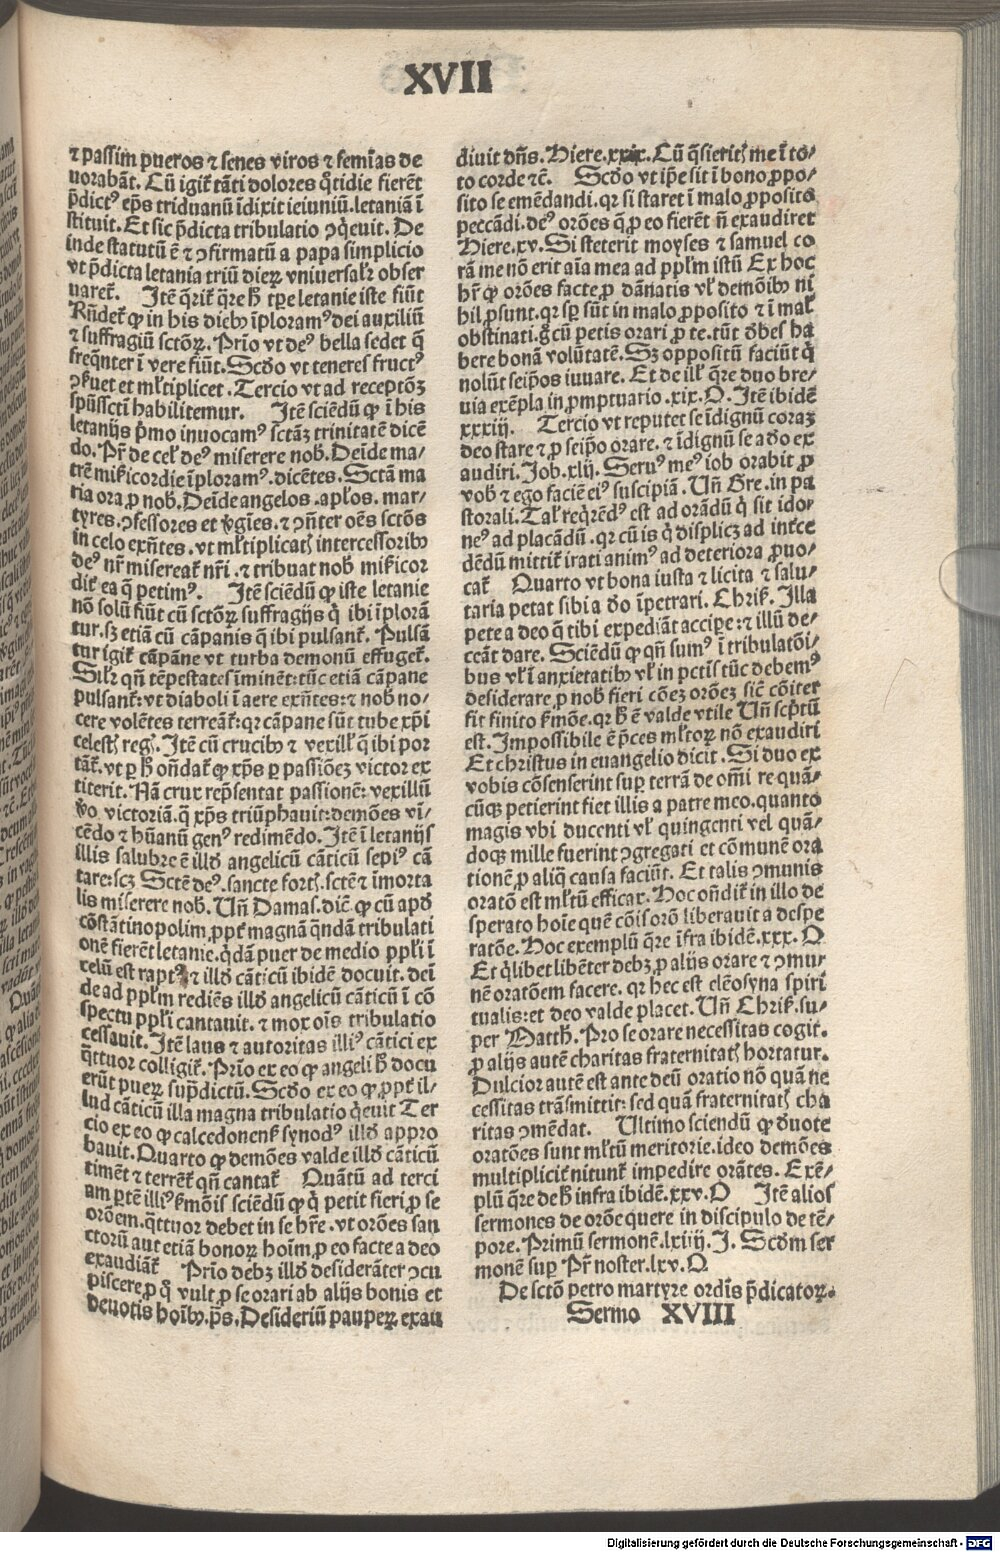 XVII
⁊ passim pueros ⁊ senes viros ⁊ femīas de
uorabāt. Cū igiť tāti dolores q̄tidie fierēt
p̄dictꝰ ep̄s triduanū īdixit ieiuniū. letaniā ī
stituit. Et sic p̄dicta tribulatio ꝯq̇euit. De
inde statutū ē ⁊ ꝯfirmatū a papa simplicio
vt p̄dicta letania triū dieꝝ vniuersalr obser
uareť. Itē q̄riť q̄re h̄ tp̄e letanie iste fiūt
Rn̄deť ꝙ in his dieb⁹ īploramꝰ dei auxiliū
⁊ suffragiū sctōꝝ. Prīo vt deꝰ bella sedet q̄
freq̄nter ī vere fiūt. Scd̄o vt teneres fructꝰ
ꝯẜuet et mľtiplicet. Tercio vt ad receptōꝫ
spūssctī habilitemur. Itē sciēdū ꝙ ī his
letanijs p̄mo inuocamꝰ sctāꝫ trinitatē dicē
do. Pr̄ de celꝭ deꝰ miserere nob̄. Deīde ma/
trē miẜicordie īploramꝰ. dicētes. Sctā ma
ria ora ꝓ nob̄. Deīde angelos. apľos. mar/
tyres. ꝯfessores et v̄gīes. ⁊ ꝯn̄ter oēs sctōs
in celo exn̄tes. vt mľtiplicatꝭ intercessorib⁹
deꝰ nr̄ misereať nr̄i. ⁊ tribuat nob̄ miẜicor
diť ea q̄ petimꝰ. Itē sciēdū ꝙ iste letanie
nō solū fiūt cū sctōꝝ suffragijs q̄ ibi īplorā
tur. sꝫ etiā cū cāpanis q̄ ibi pulsanť. Pulsā
tur igiť cāpane vt turba demonū effugeť.
Silr̄ qn̄ tēpestates īminēt: tūc etiā cāpane
pulsanť: vt diaboli ī aere exn̄tes: ⁊ nob̄ no/
cere volētes terreāť: qꝛ cāpane sūt tube xp̄i
celestꝭ regꝭ. Itē cū crucib⁹ ⁊ vexillꝭ q̄ ibi por
tāť. vt ꝑ h̄ on̄dať ꝙ xp̄s ꝑ passiōeꝫ victor ex
titerit. Nā crux rep̄sentat passionē: vexillū
v̄o victoriā. q̄ xp̄s triūphauit: demōes vī/
cēdo ⁊ hūanū genꝰ redimēdo. Itē ī letanijs
illis salubre ē illđ angelicū cāticū sepiꝰ cā
tare: scꝫ Sctē deꝰ. sancte fortꝭ. sctē ⁊ īmorta
lis miserere nob̄. Un̄ Damas. dic̄ ꝙ cū apđ
cōstātinopolim. ꝓpť magnā qn̄dā tribulati
onē fierēt letanie. q̇dā puer de medio ppľi ī
celū est raptꝰ ⁊ illđ cāticū ibidē docuit. deī
de ad ppľm rediēs illđ angelicū cāticū ī cō
spectu ppľi cantauit. ⁊ mox oīs tribulatio
cessauit. Itē laus ⁊ autoritas illiꝰ cātici ex
q̄ttuor colligiť. Prīo ex eo ꝙ angeli h̄ docu
erūt pueꝝ sup̄dictū. Scd̄o ex eo ꝙ ꝓpť il/
lud cāticū illa magna tribulatio q̇euit Ter
cio ex eo ꝙ calcedonenẜ synodꝰ illđ appro
bauit. Quarto ꝙ demōes valde illđ cāticū
timēt ⁊ terrēť qn̄ cantať Quātū ad terci
am ꝑtē illiꝰ ẜmōis sciēdū ꝙ q̇ petit fieri ꝓ se
orōem. q̄ttuor debet in se hr̄e. vt orōes san
ctorū aut etiā bonoꝝ hoīm ꝓ eo facte a deo
exaudiāť Prīo debꝫ illđ desiderāter ꝯcu
piscere ꝓ q̇ vult ꝓ se orari ab alijs bonis et
deuotis hoīb⁹. p̄s. Desideriū paupeꝝ exau
diuit dn̄s. Hiere. xxix. Cū q̄sieritꝭ me ī to/
to corde ⁊c̄. Scd̄o vt ip̄e sit ī bono ꝓpo/
sito se emēdandi. qꝛ si staret ī malo ꝓposito
peccādi. deꝰ orōes q̄ ꝓ eo fierēt n̄ exaudiret
Hiere. xv. Si steterit moyses ⁊ samuel co
rā me nō erit aīa mea ad ppľm istū Ex hoc
hr̄ ꝙ orōes facte ꝓ dānatis vľ demōib⁹ ni
hil ꝓsunt. qꝛ sꝑ sūt in malo ꝓposito ⁊ ī malꝭ
obstinati. g̊ cū petis orari ꝓ te. tūt d̄bes ha
bere bonā volūtatē. Sꝫ oppositū faciūt q̇
nolūt seip̄os iuuare. Et de illꝭ q̄re duo bre/
via exēpla in ꝓmptuario. xix. O. Itē ibidē
xxxiij. Tercio vt reputet se īdignū coraꝫ
deo stare ⁊ ꝓ seip̄o orare. ⁊ īdignū se a d̄o ex
audiri. Job. xlij. Seruꝰ meꝰ iob orabit ꝓ
vob̄ ⁊ ego faciē eiꝰ suscipiā. Un̄ Gre. in pa
storali. Talꝭ req̄rēdꝰ est ad orādū q̇ sit ido/
neꝰ ad placādū. qꝛ cū is q̇ displicꝫ ad inťce
dēdū mittiť irati animꝰ ad deteriora ꝓuo/
cať Quarto vt bona iusta ⁊ licita ⁊ salu/
taria petat sibi a d̄o īpetrari. Chriẜ. Illa
pete a deo q̄ tibi expediāt accipe: ⁊ illū de/
ceāt dare. Sciēdū ꝙ qn̄ sumꝰ ī tribulatōi/
bus vľ ī anxietatib⁹ vľ in pctīs tūc debemꝰ
desiderare ꝓ nob̄ fieri cōeꝫ orōeꝫ sic̄ cōiter
fit finito ẜmōe. qꝛ h̄ ē valde vtile Un̄ scp̄tū
est. Impossibile ē p̄ces mľtoꝝ nō exaudiri
Et christus in euangelio dicit. Si duo ex
vobis cōsenserint suꝑ terrā de om̄i re quā/
cūqꝫ petierint fiet illis a patre meo. quanto
magis vbi ducenti vľ quingenti vel quā/
doqꝫ mille fuerint ꝯgregati et cōmunē ora
tionē ꝓ aliq̄ causa faciūt. Et talis ꝯmunis
oratō est mľtū efficax. Hoc on̄diť in illo de
sperato hoīe quē cōis orō liberauit a despe
ratōe. Hoc exemplū q̄re īfra ibidē. xxx. O
Et q̇libet libēter debꝫ ꝓ alijs orare ⁊ ꝯmu/
nē oratōem facere. qꝛ hec est elēosyna spiri
tualis: et deo valde placet. Un̄ Chriẜ. su/
per Matth̄. Pro se orare necessitas cogit.
ꝓ alijs autē charitas fraternitatꝭ hortatur.
Dulcior autē est ante deū oratio nō quā ne
cessitas trāsmittit: sed quā fraternitatꝭ cha
ritas ꝯmēdat. Ultimo sciendū ꝙ d̄uote
oratōes sunt mľtū meritorie. ideo demōes
multiplicit̄ nitunť impedire orātes. Exē/
plū q̄re de h̄ infra ibidē. xxv. O Itē alios
sermones de orōe quere in discipulo de tē/
pore. Primū sermonē. lxiiij. J. Scd̄m ser
monē suꝑ Pr̄ noster. lxv. O.
De sctō petro martyre ordīs p̄dicatoꝝ.
Sermo XVIII
Digitalisierung gefördert durch die Deutsche Forschungsgemeinschaft - DFG